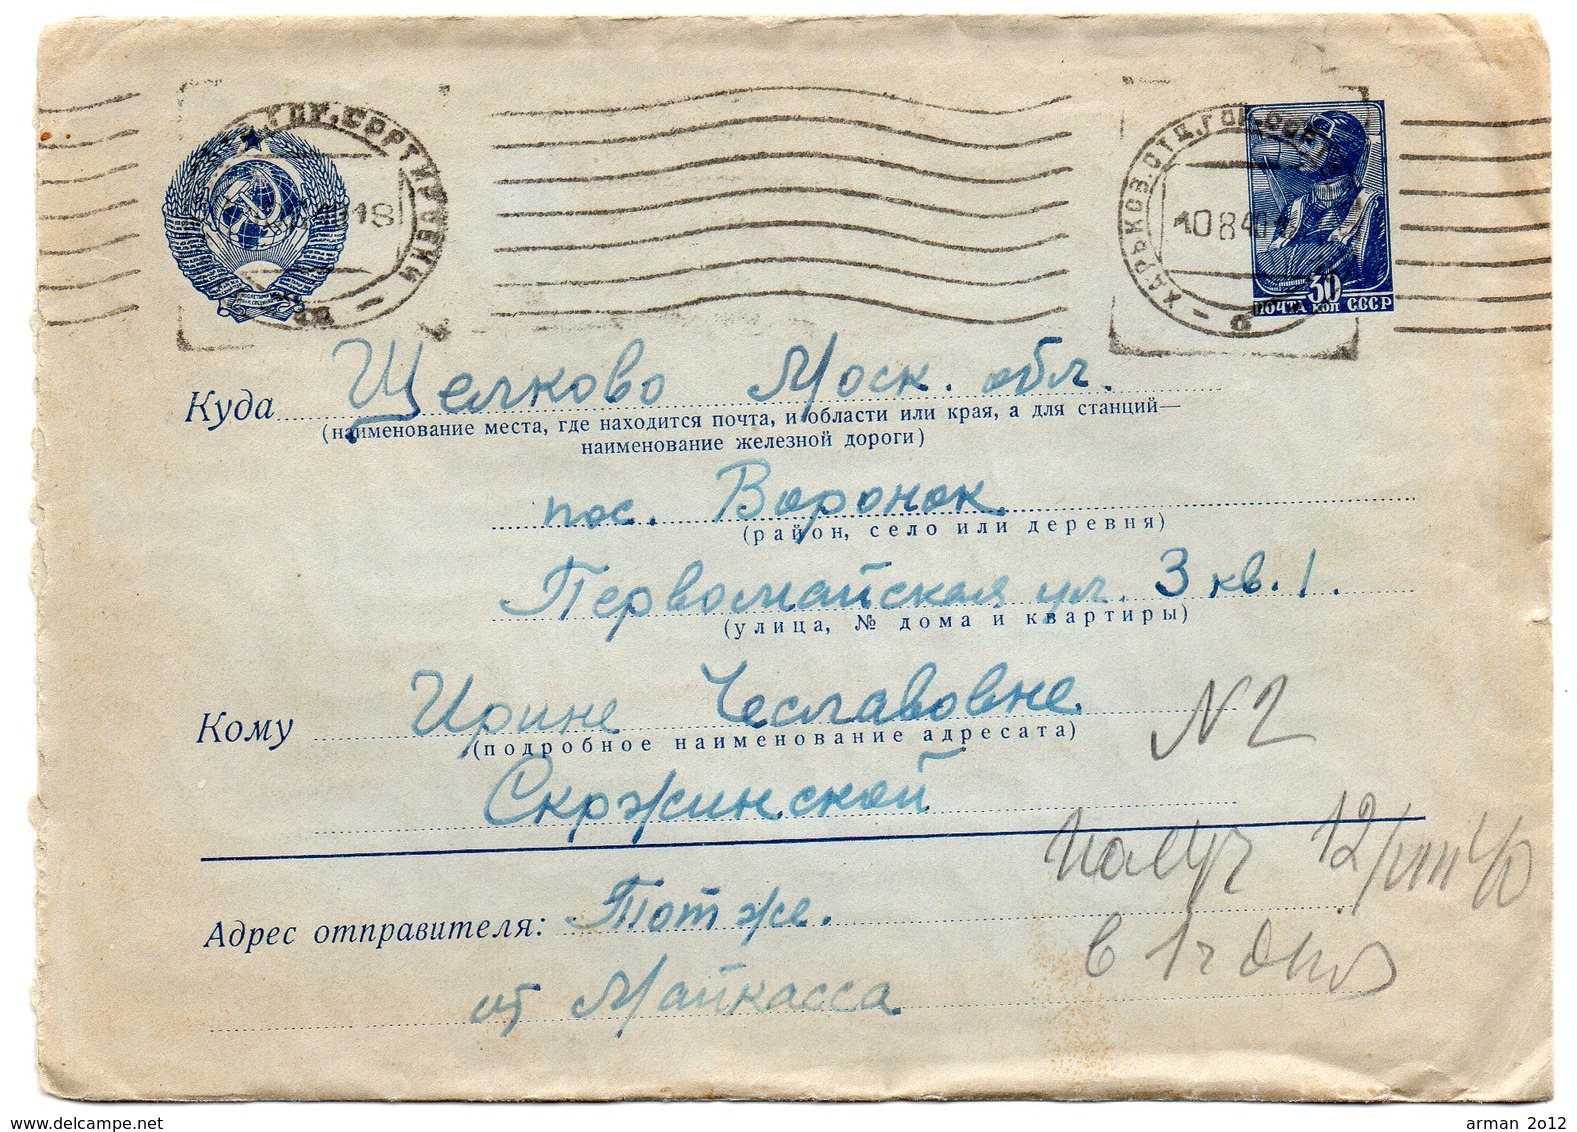 ХАРЬКОВ.ОТД.ГОР.СОРТИРОВКИ
10 8 40
ПОЧТА 30 КОП СССР
Куда Щелково Моск. обл.
(наименование места, где находится почта, и области или края, а для станций—
наименование железной дороги)
пос. Воронок
(район, село или деревня)
Первомайская ул. 3 кв. 1.
(улица, № дома и квартиры)
Кому Ирине Чеславовне
(подробное наименование адресата)
Скржинской
N 2
Получ 12/VIII 40
в 1 ч дня
Адрес отправителя: Тот же.
от Майкасса
delcampe.net
arman 2012